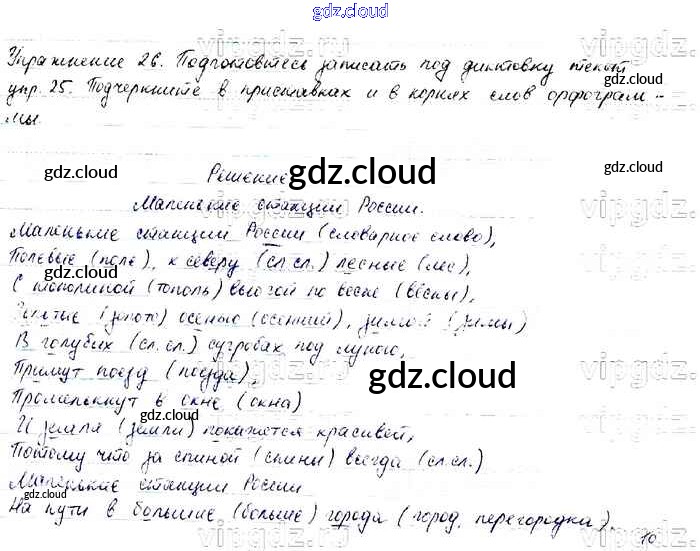 gdz.cloud
Упражнение 26. Подготовьтесь записать под диктовку текст
упр. 25. Подчеркните в приставках и в корнях слов орфограм-
мы.
gdz.cloud
gdz.cloud
gdz.cloud
Решение
gdz.cloud
Маленькие станции России.
gdz.cloud
Маленькие станции России (словарное слово),
Полевые (поле), к северу (сл.сл.) лесные (лес),
gdz.cloud
gdz.cloud
С тополиной (тополь) вьюгой по весне (вёсны),
Залитые (злато) осенью (осенний), зимой (зимы)
В голубых (сл.сл.) сугробах под луною,
Примут поезд (поезда),
gdz.cloud
Промелькнут в окне (окна)
gdz.cloud
И земля (земли) покажется красивей,
Потому что за спиной (спины) всегда (сл.сл.)
Маленькие станции России
gdz.cloud
gdz.cloud
На пути в большие (больше) города (город, перегородка).
10
vipgdz.ru